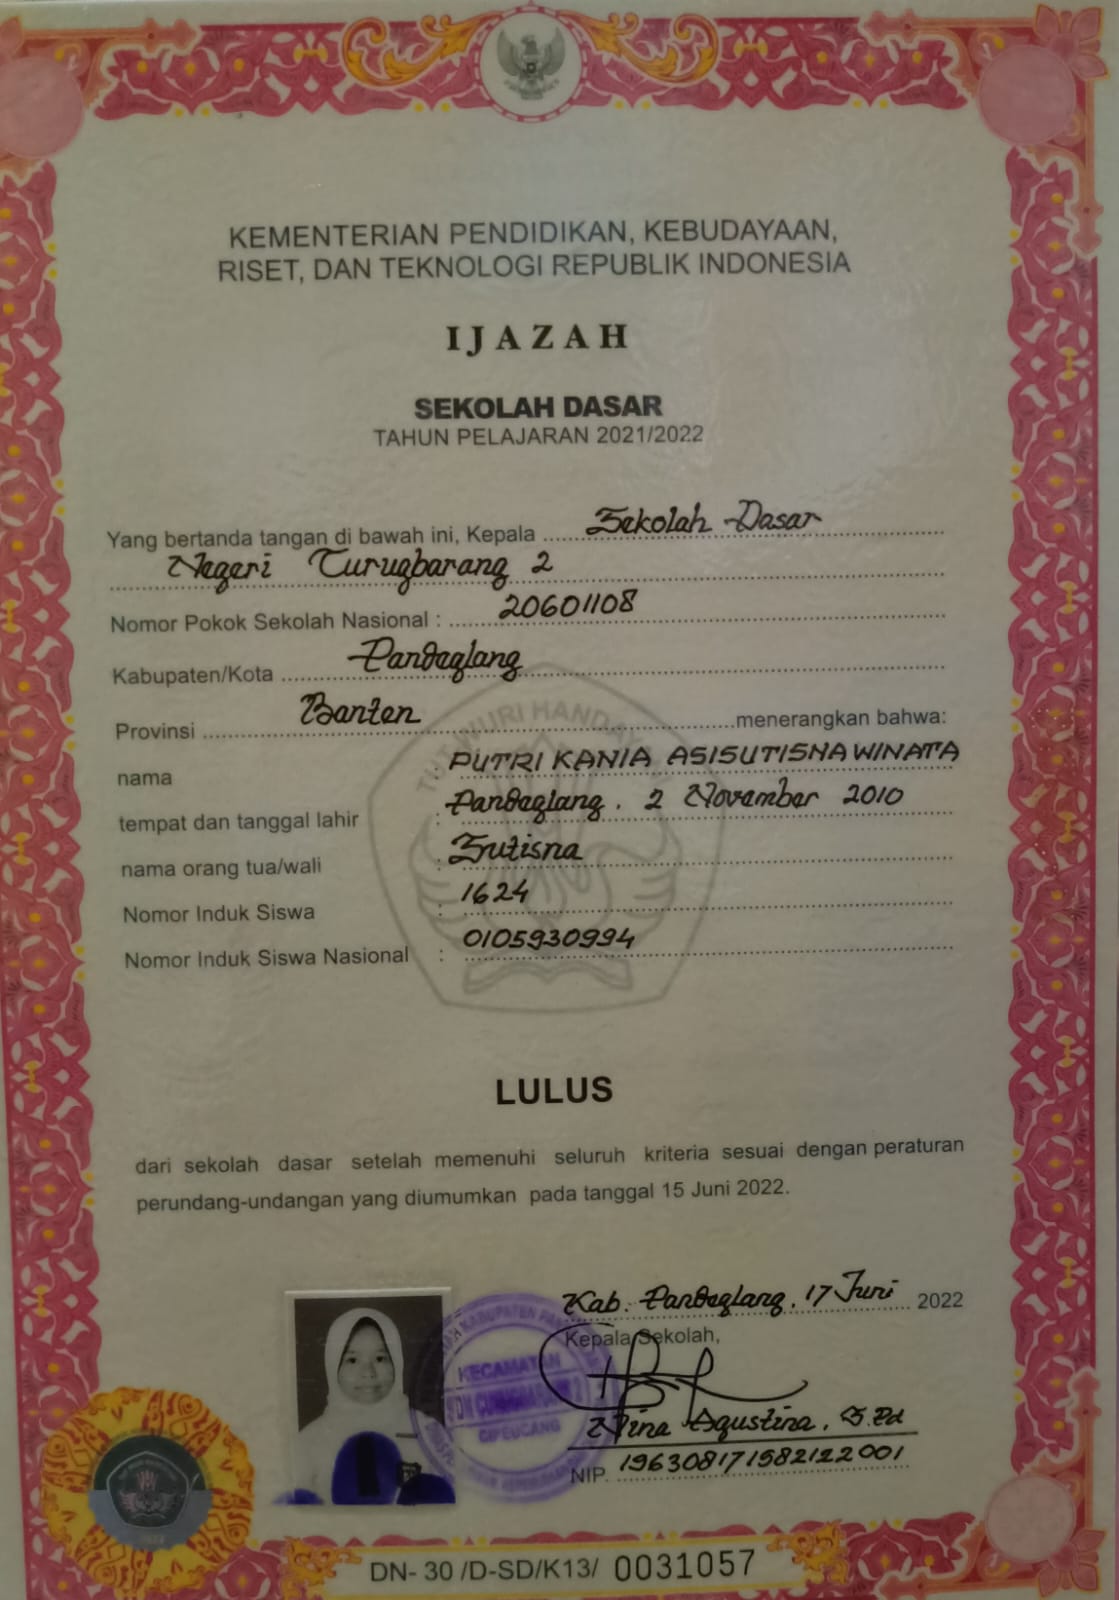 KEMENTERIAN PENDIDIKAN, KEBUDAYAAN,
RISET, DAN TEKNOLOGI REPUBLIK INDONESIA
IJAZAH
SEKOLAH DASAR
TAHUN PELAJARAN 2021/2022
Yang bertanda tangan di bawah ini, Kepala Sekolah Dasar
Negeri Curugbarang 2
Nomor Pokok Sekolah Nasional : 20601108
Kabupaten/Kota Pandeglang
Provinsi Banten menerangkan bahwa:
nama : PUTRI KANIA ASISUTISNA WINATA
tempat dan tanggal lahir : Pandeglang, 2 November 2010
nama orang tua/wali : Sutisna
Nomor Induk Siswa : 1624
Nomor Induk Siswa Nasional : 0105930994
TUT WURI HANDAYANI
LULUS
dari sekolah dasar setelah memenuhi seluruh kriteria sesuai dengan peraturan
perundang-undangan yang diumumkan pada tanggal 15 Juni 2022.
Kab. Pandeglang, 17 Juni 2022
Kepala Sekolah,
KECAMATAN
CIPEUCANG
Nina Agustina, S.Pd
NIP. 196308171982122001
DN- 30 /D-SD/K13/ 0031057